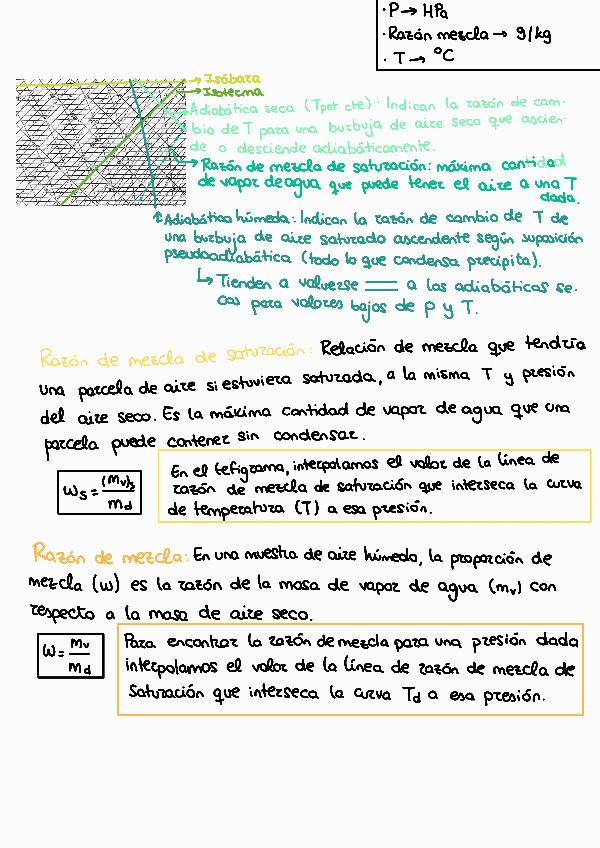 · P → HPa
· Razón mezcla → g/kg
· T → °C
→ Isóbara
→ Isoterma
Adiabática seca (Tpot cte): Indican la razón de cam-
bio de T para una burbuja de aire seco que ascien-
de o desciende adiabáticamente.
→ Razón de mezcla de saturación: máxima cantidad
de vapor de agua que puede tener el aire a una T
dada.
Adiabática húmeda: Indican la razón de cambio de T de
una burbuja de aire saturado ascendente según suposición
pseudoadiabática (todo lo que condensa precipita).
↳ Tienden a volverse = a las adiabáticas se-
cas para valores bajos de P y T.
Razón de mezcla de saturación: Relación de mezcla que tendría
una parcela de aire si estuviera saturada, a la misma T y presión
del aire seco. Es la máxima cantidad de vapor de agua que una
parcela puede contener sin condensar.
ws = (mv)s / md
En el tefigrama, interpolamos el valor de la línea de
razón de mezcla de saturación que interseca la curva
de temperatura (T) a esa presión.
Razón de mezcla: En una muestra de aire húmedo, la proporción de
mezcla (w) es la razón de la masa de vapor de agua (mv) con
respecto a la masa de aire seco.
w = mv / md
Para encontrar la razón de mezcla para una presión dada
interpolamos el valor de la línea de razón de mezcla de
saturación que interseca la curva Td a esa presión.